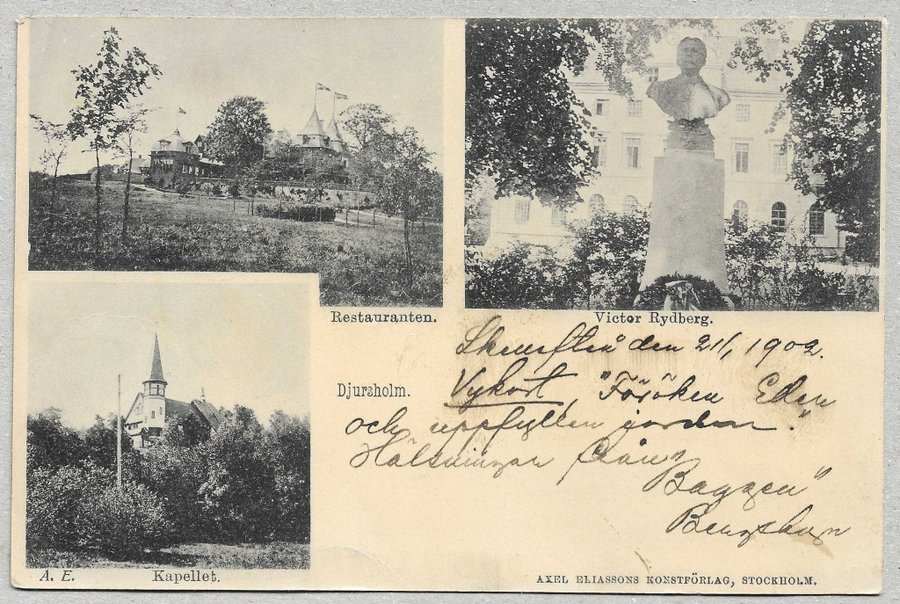 Restauranten.
Victor Rydberg.
Djursholm.
den 21/1 1902.
Vykort, "Föröken Eder
och uppfyllen jorden."
Hälsningar från
Baggen"
A. E.
Kapellet.
AXEL ELIASSONS KONSTFÖRLAG, STOCKHOLM.